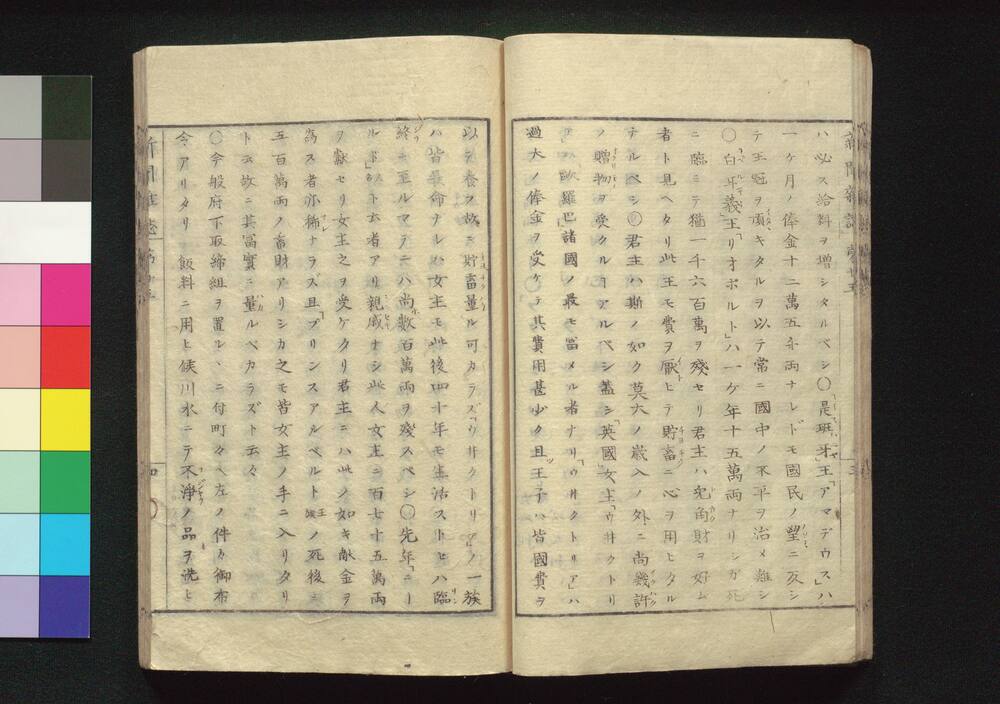 ハ必ス給料ヲ増シタルベシ〇是班牙王「アマデウス」ハ
一ケ月ノ俸金十二萬五千両ナレドモ國民ノ望ニ反シ
テ王冠ヲ頂キタルヲ以テ常ニ國中ノ不平ヲ治メ難シ
〇白耳義王「リオポルト」ハ一ケ年十五萬両ナリシガ死
ニ臨ミテ猶一千六百萬ヲ殘セリ君主ハ兎角財ヲ好ム
者ト見ヘタリ此王モ費ヲ厭ヒテ貯畜ニ心ヲ用ヒタル
ナルベシ〇君主ハ斯ノ如ク莫大ノ歳入ノ外ニ尚幾許
ノ贈物ヲ受クルヿアルベシ蓋シ英國女主「ウ井クトリ
ア」ハ歐羅巴諸國ノ最モ富メル者ナリ「ウ井クトリア」ハ
過大ノ俸金ヲ受ケテ其費用甚少ク且王子ハ皆國費ヲ
以テ養フ故ニ貯畜量ル可カラズ「ウ井クトリア」ノ一族
ハ皆長命ナレハ女主モ此後四十年モ生活スルトセハ臨
終ニ至ルマテニハ尚數百萬両ヲ殘スベシ〇先年「ニー
ルド」ト云者アリ親戚ナシ此人女主ニ百七十五萬両
ヲ獻セリ女主之ヲ受ケタリ君主ニハ此ノ如キ献金ヲ
為ス者亦稀ナラズ且「プリンスアルベルト王族ノ死後ニ
五百萬両ノ畜財アリシカ之モ皆女主ノ手ニ入リタリ
ト云故ニ其冨實ニ量ルベカラズト云々
〇今般府下取締組ヲ置ルヽニ付町々ヘ左ノ件々御布
令アリタリ 飯料ニ用ヒ候川水ニテ不淨ノ品ヲ洗ヒ